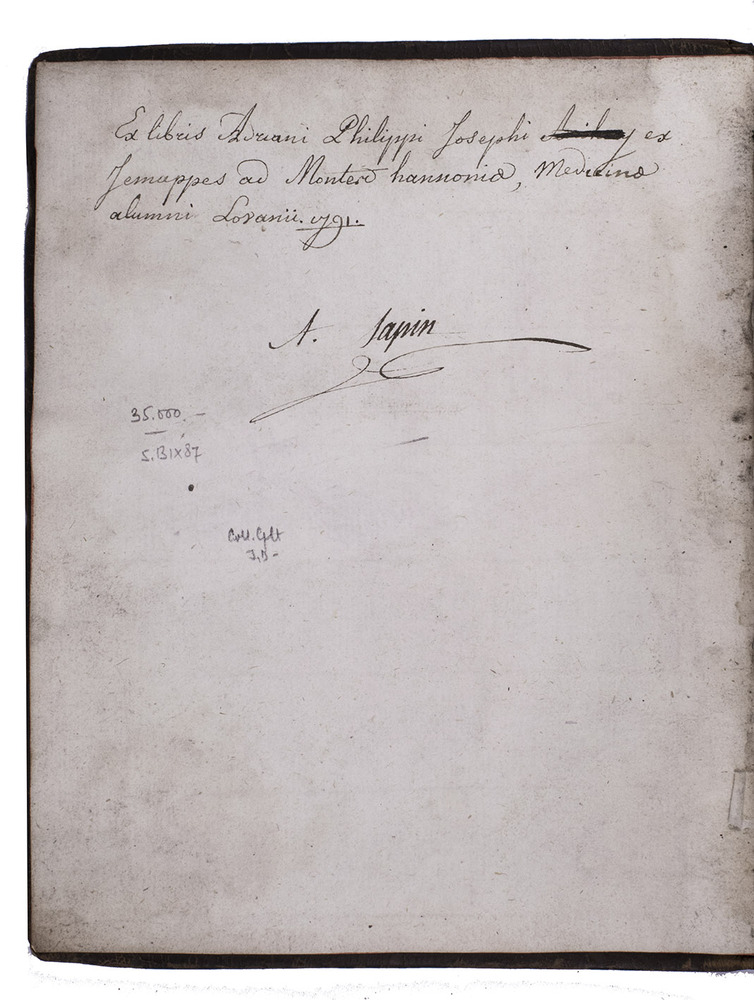 Ex libris Adriani Philippi Josephi ex
Jemappes ad Montes hannoniæ, Medicinæ
alumni Lovanii. 1791.
A. Sapin
35.000 –
S.BIX87
Coll. Cplt
J.D–